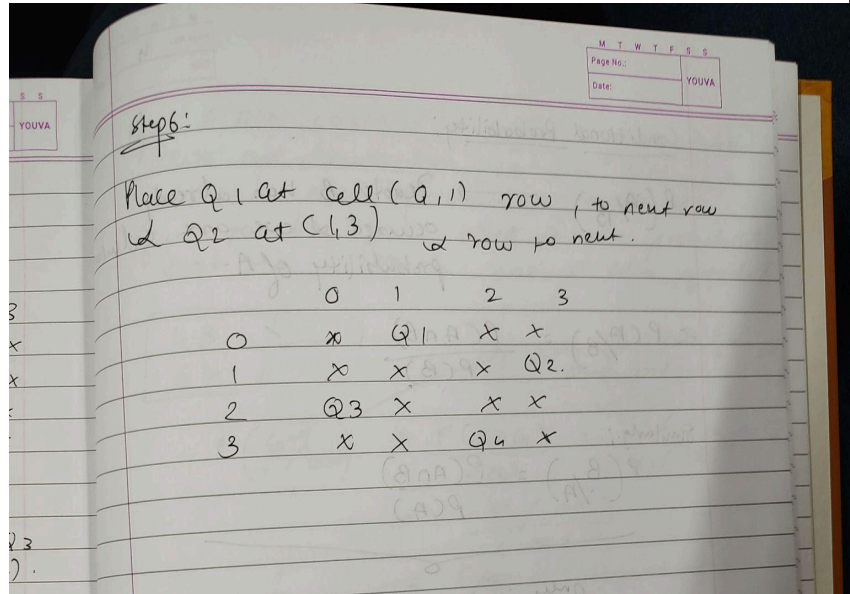 M T W T F S S
Page No.:
Date:
YOUVA
S S
YOUVA
Step 6:
Place Q1 at cell (0,1) row, to next row
& Q2 at (1,3) & row to next.
0 1 2 3
0 x Q1 x x
1 x x x Q2.
2 Q3 x x x
3 x x Q4 x
3
x
x
Q3
).